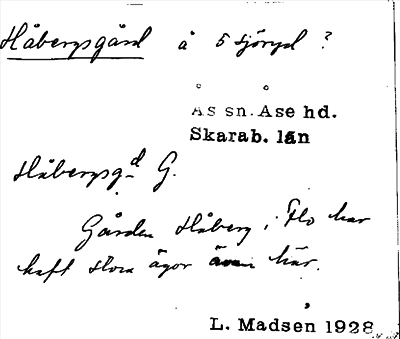 Håbergsgård å S Sjöryd ?
Ås sn. Åse hd.
Skarab. län
Håbergsgd G.
Gården Håberg, i Flo har
haft stora ägor även här.
L. Madsen 1928